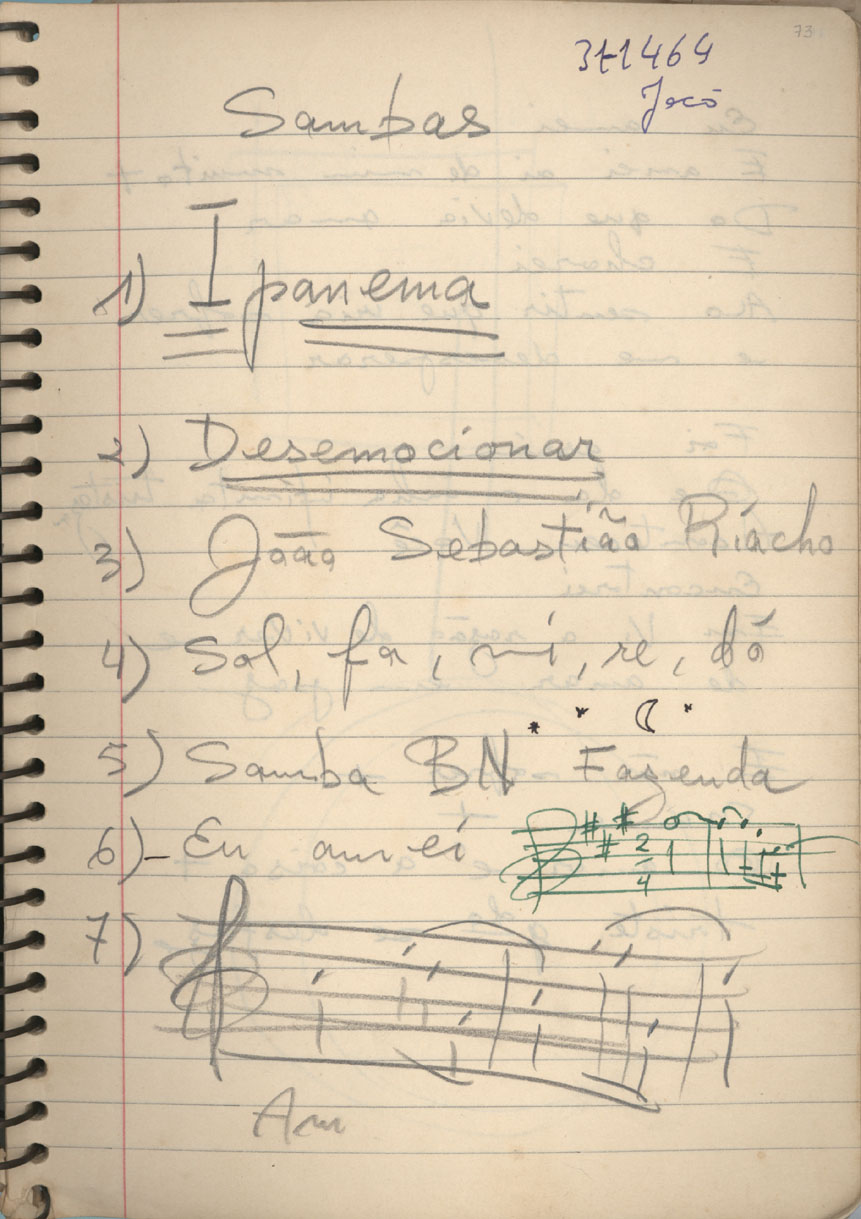 73
371464
Jocó
Sambas
1) Ipanema
2) Desemocionar
3) João Sebastião Riacho
4) Sol, fa, mi, re, dó
5) Samba BN Fazenda
6) - Eu amei
2
4
7)
Am